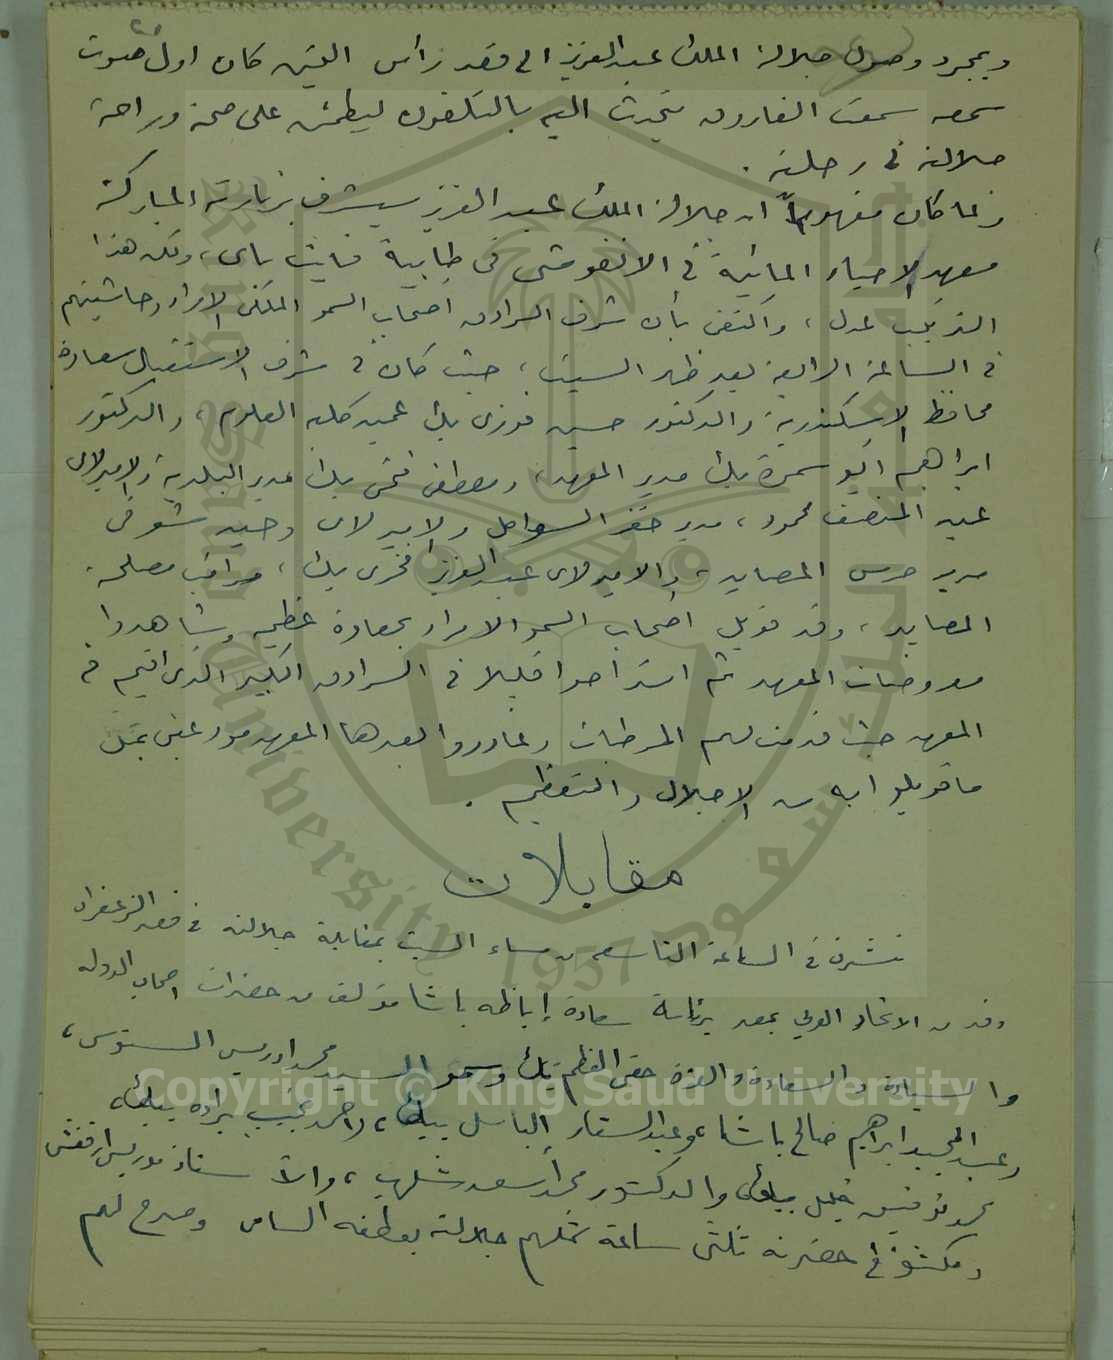 وبمجرد وصول جلالة الملك عبدالعزيز الى قصر رأس التين كان اول صوت
سمعه سمعت الفاروق يتحدث اليه بالتلفون ليطمئن على صحة وراحة
جلالته في رحلته .
ولما كان مفهوماً ان جلالة الملك عبد العزيز سيشرف بزيارته المباركة
معهد الاحياء المائية في الانفوشى فى طابية قايت باى ، ولكن هذا
الترتيب عدل ، واكتفى بأن شرف السرادق اصحاب السمو الملكى الامراء وحاشيتهم
في الساعة الرابعة بعد ظهر السبت ، حيث كان في شرف الاستقبال سعادة
محافظ الاسكندرية والدكتور حسين فوزى بك عميد كلية العلوم ، والدكتور
ابراهيم ابو سمرة بك مدير المعهد ، ومصطفى فهمى بك مدير البلدية والاميرلاى
عبد المنصف محمود ، مدير خفر السواحل والاميرلاى وحيد شوقى
مدير حرس المصايد ، والاميرلاى عبد العزيز فخرى بك ، مراقب مصلحة
المصايد ، وقد قوبل اصحاب السمو الامراء بحفاوة عظيمة وشاهدوا
معروضات المعهد ثم استراحوا قليلا فى السرادق الكبير الذى اقيم فى
المعهد حيث قدمت لهم المرطبات وغادروا بعدها المعهد مودعين بمثل
ما قوبلوا به من الاجلال والتعظيم .
مقابلات
تشرف في الساعة التاسعة من مساء السبت بمقابلة جلالته في قصر الزعفران
وفد من الاتحاد العربي بمصر برئاسة سعادة إباظه باشا مؤلف من حضرات اصحاب الدولة
والسيادة والسعادة والعزة حقى العظم بك وسمو السيد محمد ادريس السنوسى ،
وعبد المجيد ابراهيم صالح باشا ، وعبد الستار الباسل بيك ، واحمد نجيب براده بيك ،
محمد توفيق خليل بيك والدكتور محمد أسعد سلهب ، والأستاذ موريس ارقش
ومكثوا في حضرته ثلثى ساعة شملهم جلالته بعطفه السامى وصرح لهم
Copyright © King Saud University
King Saud University
1957